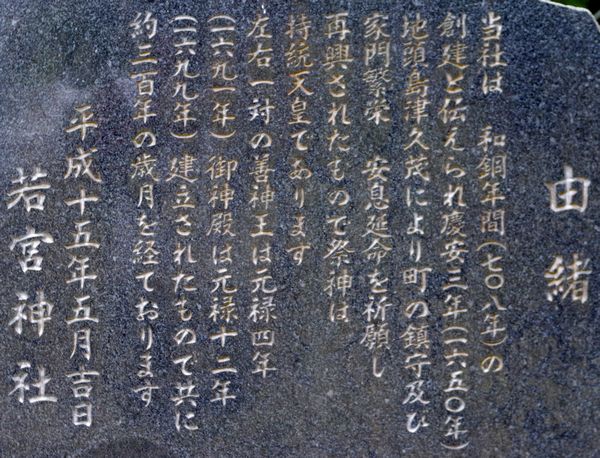 由緒
当社は　和銅年間(七〇八年)の
創建と伝えられ慶安三年(一六五〇年)
地頭島津久茂により町の鎮守及び
家門繁栄　安息延命を祈願し
再興されたもので祭神は
持統天皇であります
左右一対の善神王は元禄四年
(一六九一年)御神殿は元禄十二年
(一六九九年)建立されたもので共に
約三百年の歳月を経ております
平成十五年五月吉日
若宮神社